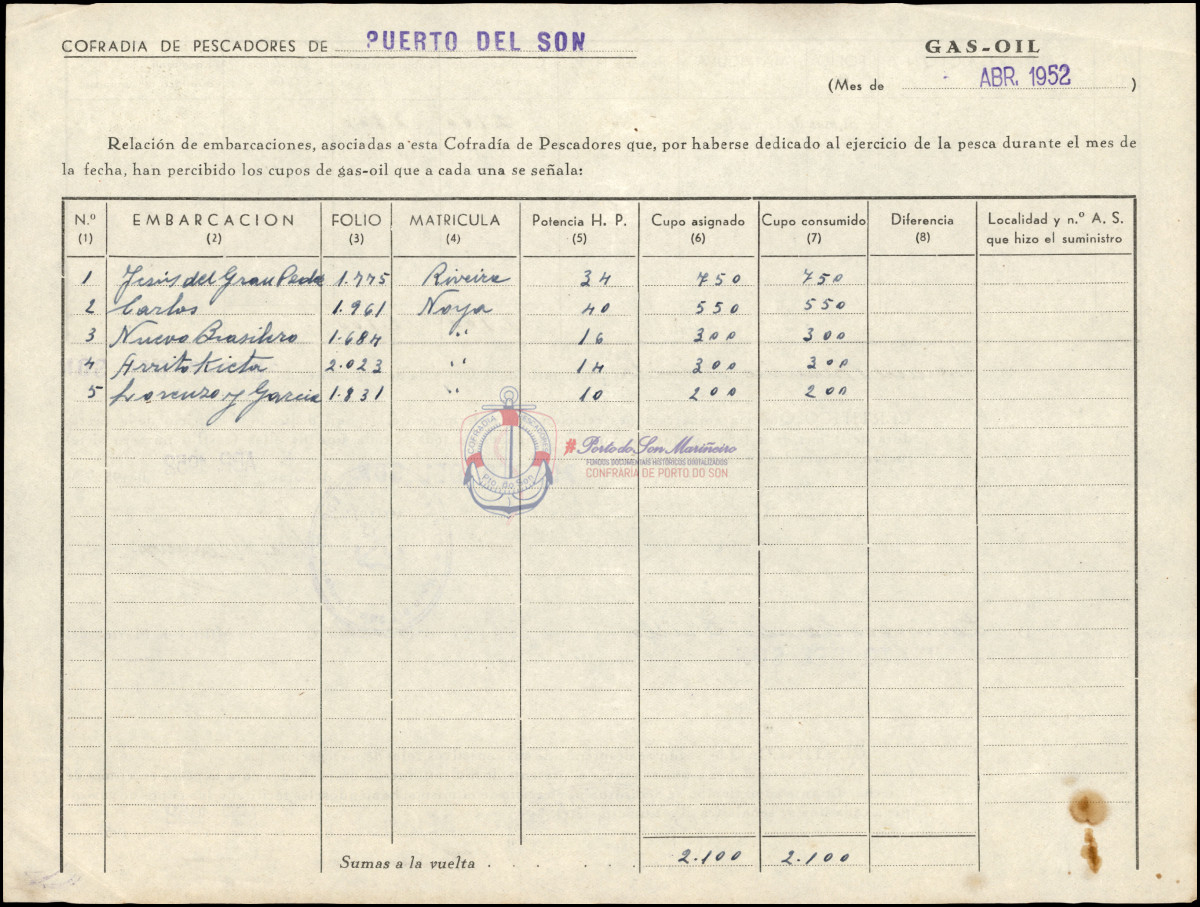 COFRADIA DE PESCADORES DE PUERTO DEL SON
GAS-OIL
(Mes de ABR. 1952 )
Relación de embarcaciones, asociadas a esta Cofradía de Pescadores que, por haberse dedicado al ejercicio de la pesca durante el mes de
la fecha, han percibido los cupos de gas-oil que a cada una se señala:
N.º EMBARCACION FOLIO MATRICULA Potencia H. P. Cupo asignado Cupo consumido Diferencia Localidad y n.º A. S.
(1) (2) (3) (4) (5) (6) (7) (8) que hizo el suministro
1 Jesús del Gran 1.775 Riveira 34 750 750
2 Carlos 1.961 Noya 40 550 550
3 Nuevo Brasilero 1.684 " 16 300 300
4 2.023 " 14 300 300
5 Lorenzo y Garcia 1.831 " 10 200 200
COFRADIA PESCADORES
Pto. do Son
#Porto do Son Mariñeiro
FONDOS DOCUMENTAIS HISTÓRICOS DIGITALIZADOS
CONFRARÍA DE PORTO DO SON
Sumas a la vuelta . . . . . 2.100 2.100